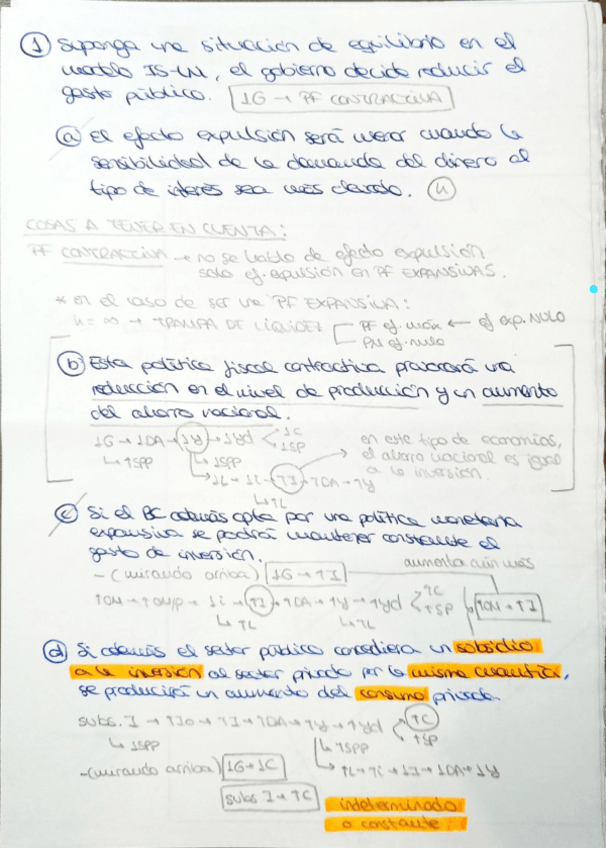 ① Suponga una situación de equilibrio en el
modelo IS-LM, el gobierno decide reducir el
gasto público. ↓G → PF CONTRACTIVA
ⓐ El efecto expulsión será menor cuando la
sensibilidad de la demanda del dinero al
tipo de interés sea más elevada. (h)
COSAS A TENER EN CUENTA:
PF CONTRACTIVA → no se habla de efecto expulsión
solo ef. expulsión en PF EXPANSIVAS.
* en el caso de ser una PF EXPANSIVA:
h = ∞ → TRAMPA DE LIQUIDEZ PF ef. máx ← ef exp. NULO
PM ef. nulo
ⓑ Esta política fiscal contractiva provocará una
reducción en el nivel de producción y un aumento
del ahorro nacional.
↓G → ↓DA → ↓Y → ↓Yd ↓C
↓SP
↳ ↑SPP ↳ ↓SPP
↳ ↓L → ↓i → ↑I → ↑DA → ↑Y
↳ ↑L
en este tipo de economías,
el ahorro nacional es igual
a la inversión.
ⓒ Si el BC además opta por una política monetaria
expansiva se podrá mantener constante el
gasto de inversión.
- (mirando arriba) ↓G → ↑I
aumenta aún más
↑OM → ↑OM/P → ↓i → ↑I → ↑DA → ↑Y → ↑Yd ↑C
↑SP
↑OM → ↑I
↳ ↑L ↳ ↑L
ⓓ Si además el sector público concediera un subsidio
a la inversión al sector privado por la misma cuantía,
se produciría un aumento del consumo privado.
subs. I → ↑Io → ↑I → ↑DA → ↑Y → ↑Yd ↑C
↑SP
↳ ↓SPP ↳ ↑SPP
↳ ↑L → ↑i → ↓I → ↓DA → ↓Y
- (mirando arriba) ↓G → ↓C
subs I → ↑C
indeterminado
o constante